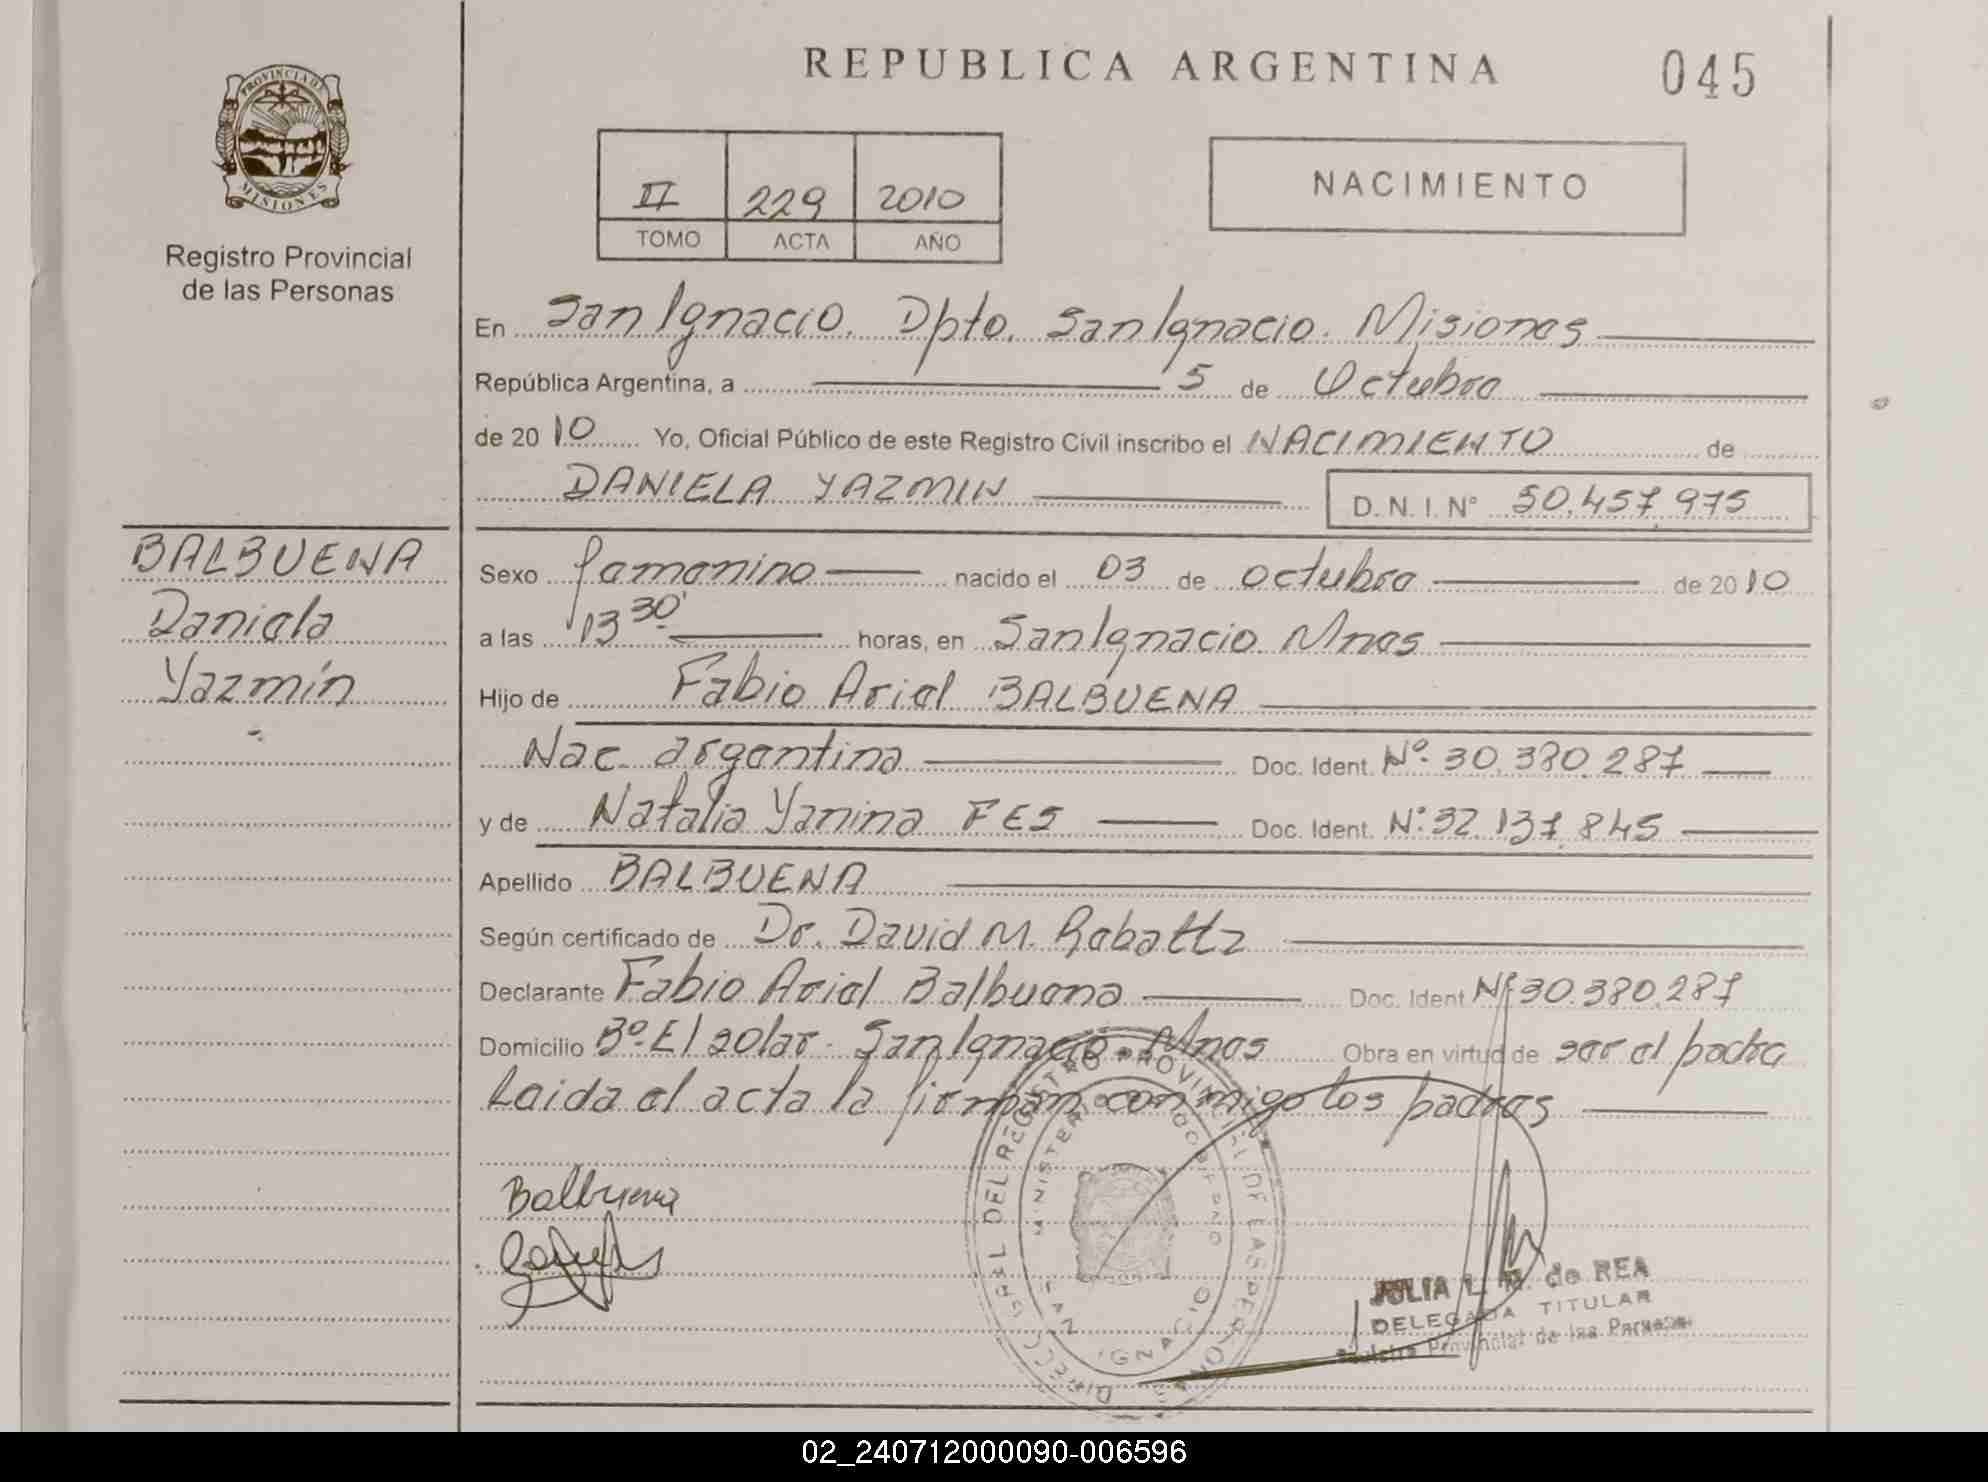 REPUBLICA ARGENTINA
045
PROVINCIA DE
MISIONES
Registro Provincial
de las Personas
II 229 2010
TOMO ACTA AÑO
NACIMIENTO
En San Ignacio. Dpto. San Ignacio. Misiones
República Argentina, a 5 de Octubre
de 2010 Yo, Oficial Público de este Registro Civil inscribo el NACIMIENTO de
DANIELA YAZMIN
D. N. I. N° 50.457.975
BALBUENA
Daniela
Yazmín
Sexo femenino nacido el 03 de octubre de 2010
a las 13 30' horas, en San Ignacio Mnes
Hijo de Fabio Ariel BALBUENA
Nac. argentina Doc. Ident. Nº. 30.380.287
y de Natalia Yanina FES Doc. Ident. N° 32.137.845
Apellido BALBUENA
Según certificado de Dr. David M.
Declarante Fabio Ariel Balbuena Doc. Ident Nº 30.380.287
Domicilio Bº. El solar. San Ignacio. Mnes Obra en virtud de ser el padre
Leida el acta la firman conmigo los padres
Balbuena
DIRECC. GRAL. DEL REGISTRO PROVINCIAL DE LAS PERSONAS
MINISTERIO DE GOBIERNO
SAN IGNACIO
JULIA L. M. de REA
DELEGADA TITULAR
Registro Provincial de las Personas
02_240712000090-006596